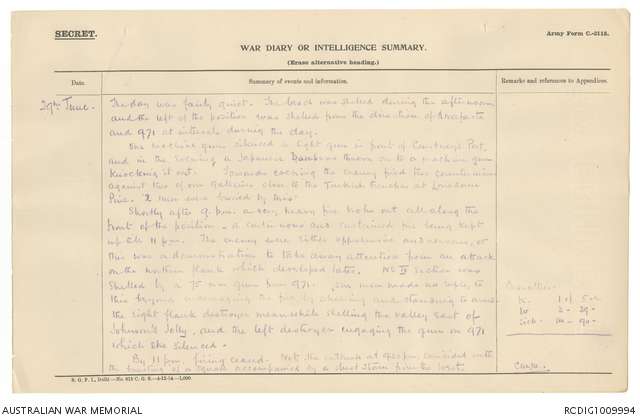 SECRET.
Army Form C.-2118.
WAR DIARY OR INTELLIGENCE SUMMARY.
(Erase alternative heading.)
Date
Summary of events and information.
Remarks and references to Appendices.
29th June.
The day was fairly quiet. The beach was shelled during the afternoon
and the left of the position was shelled from the direction of Anafarta
and 971 at intervals during the day.
Our machine guns silenced a light gun in front of Courtney's Post,
and in the evening a Japanese bomb was thrown on to a machine gun
knocking it out. Towards evening the enemy fired two countermines
against two of our galleries close to the Turkish trenches at Lonesome
Pine. 2 men were buried by this.
Shortly after 9 p.m. a very heavy fire broke out all along the
front of the position, a continuous and sustained fire being kept
up till 11 p.m. The enemy were either apprehensive and nervous, or
this was a demonstration to take away attention from an attack
on the northern flank which developed later. No IV Section was
shelled by a 75 mm gun from 971. Our men made no reply to
this beyond encouraging the fire by cheering and
the right flank destroyer meanwhile shelling the valley east of
Johnson's Jolly, and the left destroyer engaging the gun on 971
which she silenced.
By 11 pm. firing ceased. Note the outbreak at 9 pm. coincided with
the of a squall accompanied by a dust storm from the West
Casualties
K. 1 of 5 or
W 2 - 29 -
Sick -
S. G. P. I., Delhi—No. 615 C. G. S.—4-12-14—1,000.
AUSTRALIAN WAR MEMORIAL
RCDIG1009994